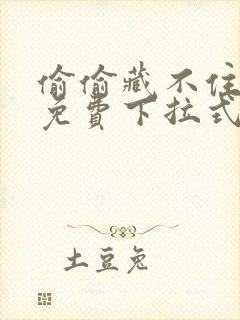 偷偷藏不住
免費下拉式
土豆兔